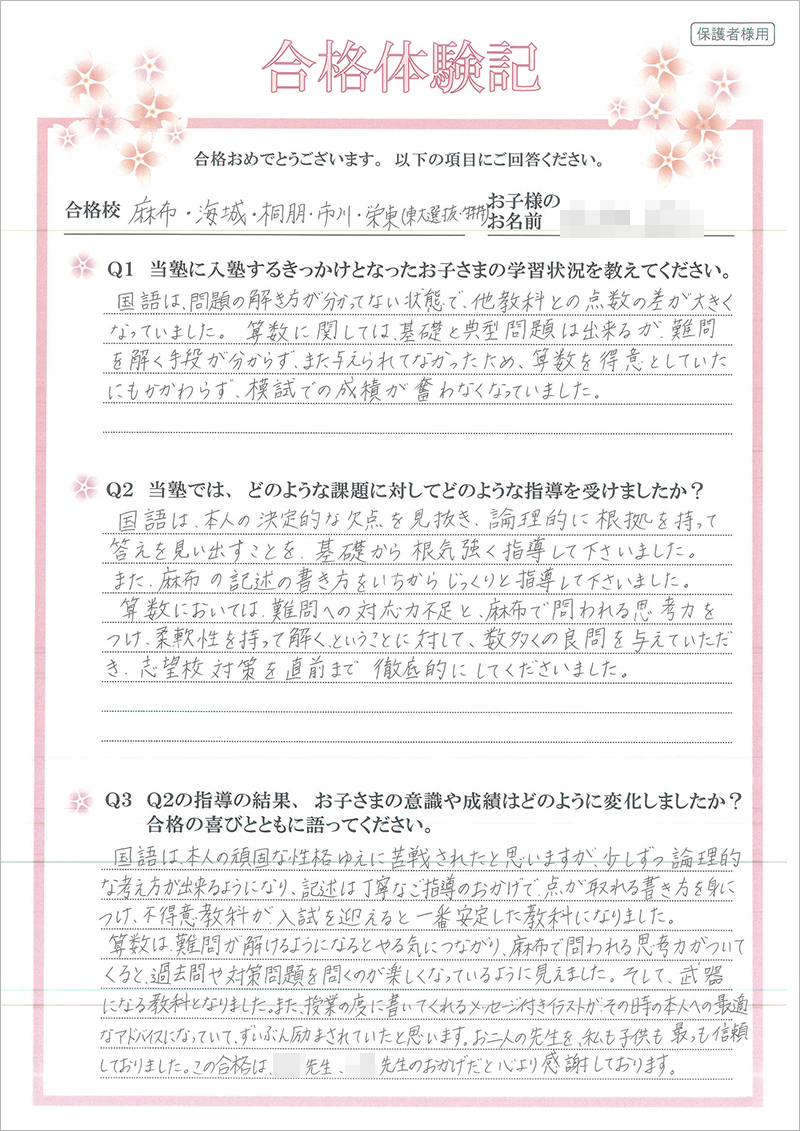 保護者様用
合格体験記
合格おめでとうございます。以下の項目にご回答ください。
合格校 麻布・海城・桐朋・市川・栄東(東大選抜・特待)
お子様の
お名前
Q1 当塾に入塾するきっかけとなったお子さまの学習状況を教えてください。
国語は、問題の解き方が分かってない状態で、他教科との点数の差が大きく
なっていました。算数に関しては、基礎と典型問題は出来るが、難問
を解く手段が分からず、また与えられてなかったため、算数を得意としていた
にもかかわらず、模試での成積が奮わなくなっていました。
Q2 当塾では、どのような課題に対してどのような指導を受けましたか？
国語は、本人の決定的な欠点を見抜き、論理的に根拠を持って
答えを見い出すことを、基礎から根気強く指導して下さいました。
また、麻布の記述の書き方をいちからじっくりと指導して下さいました。
算数においては、難問への対応力不足と、麻布で問われる思考力を
つけ、柔軟性を持って解く、ということに対して、数多くの良問を与えていただ
き、志望校対策を直前まで徹底的にしてくださいました。
Q3 Q2の指導の結果、お子さまの意識や成績はどのように変化しましたか？
合格の喜びとともに語ってください。
国語は、本人の頑固な性格ゆえに苦戦されたと思いますが、少しずつ論理的
な考え方が出来るようになり、記述は丁寧なご指導のおかげで、点が取れる書き方を身に
つけ、不得意教科が入試を迎えると一番安定した教科になりました。
算数は、難問が解けるようになるとやる気につながり、麻布で問われる思考力がついて
くると、過去問や対策問題を問くのが楽しくなっているように見えました。そして、武器
になる教科となりました。また、授業の度に書いてくれるメッセージ付きイラストが、その時の本人への最適
なアドバイスになっていて、ずいぶん励まされていたと思います。お二人の先生を、私も子供も最っも信頼
しておりました。この合格は、 先生、 先生のおかげだと心より感謝しております。